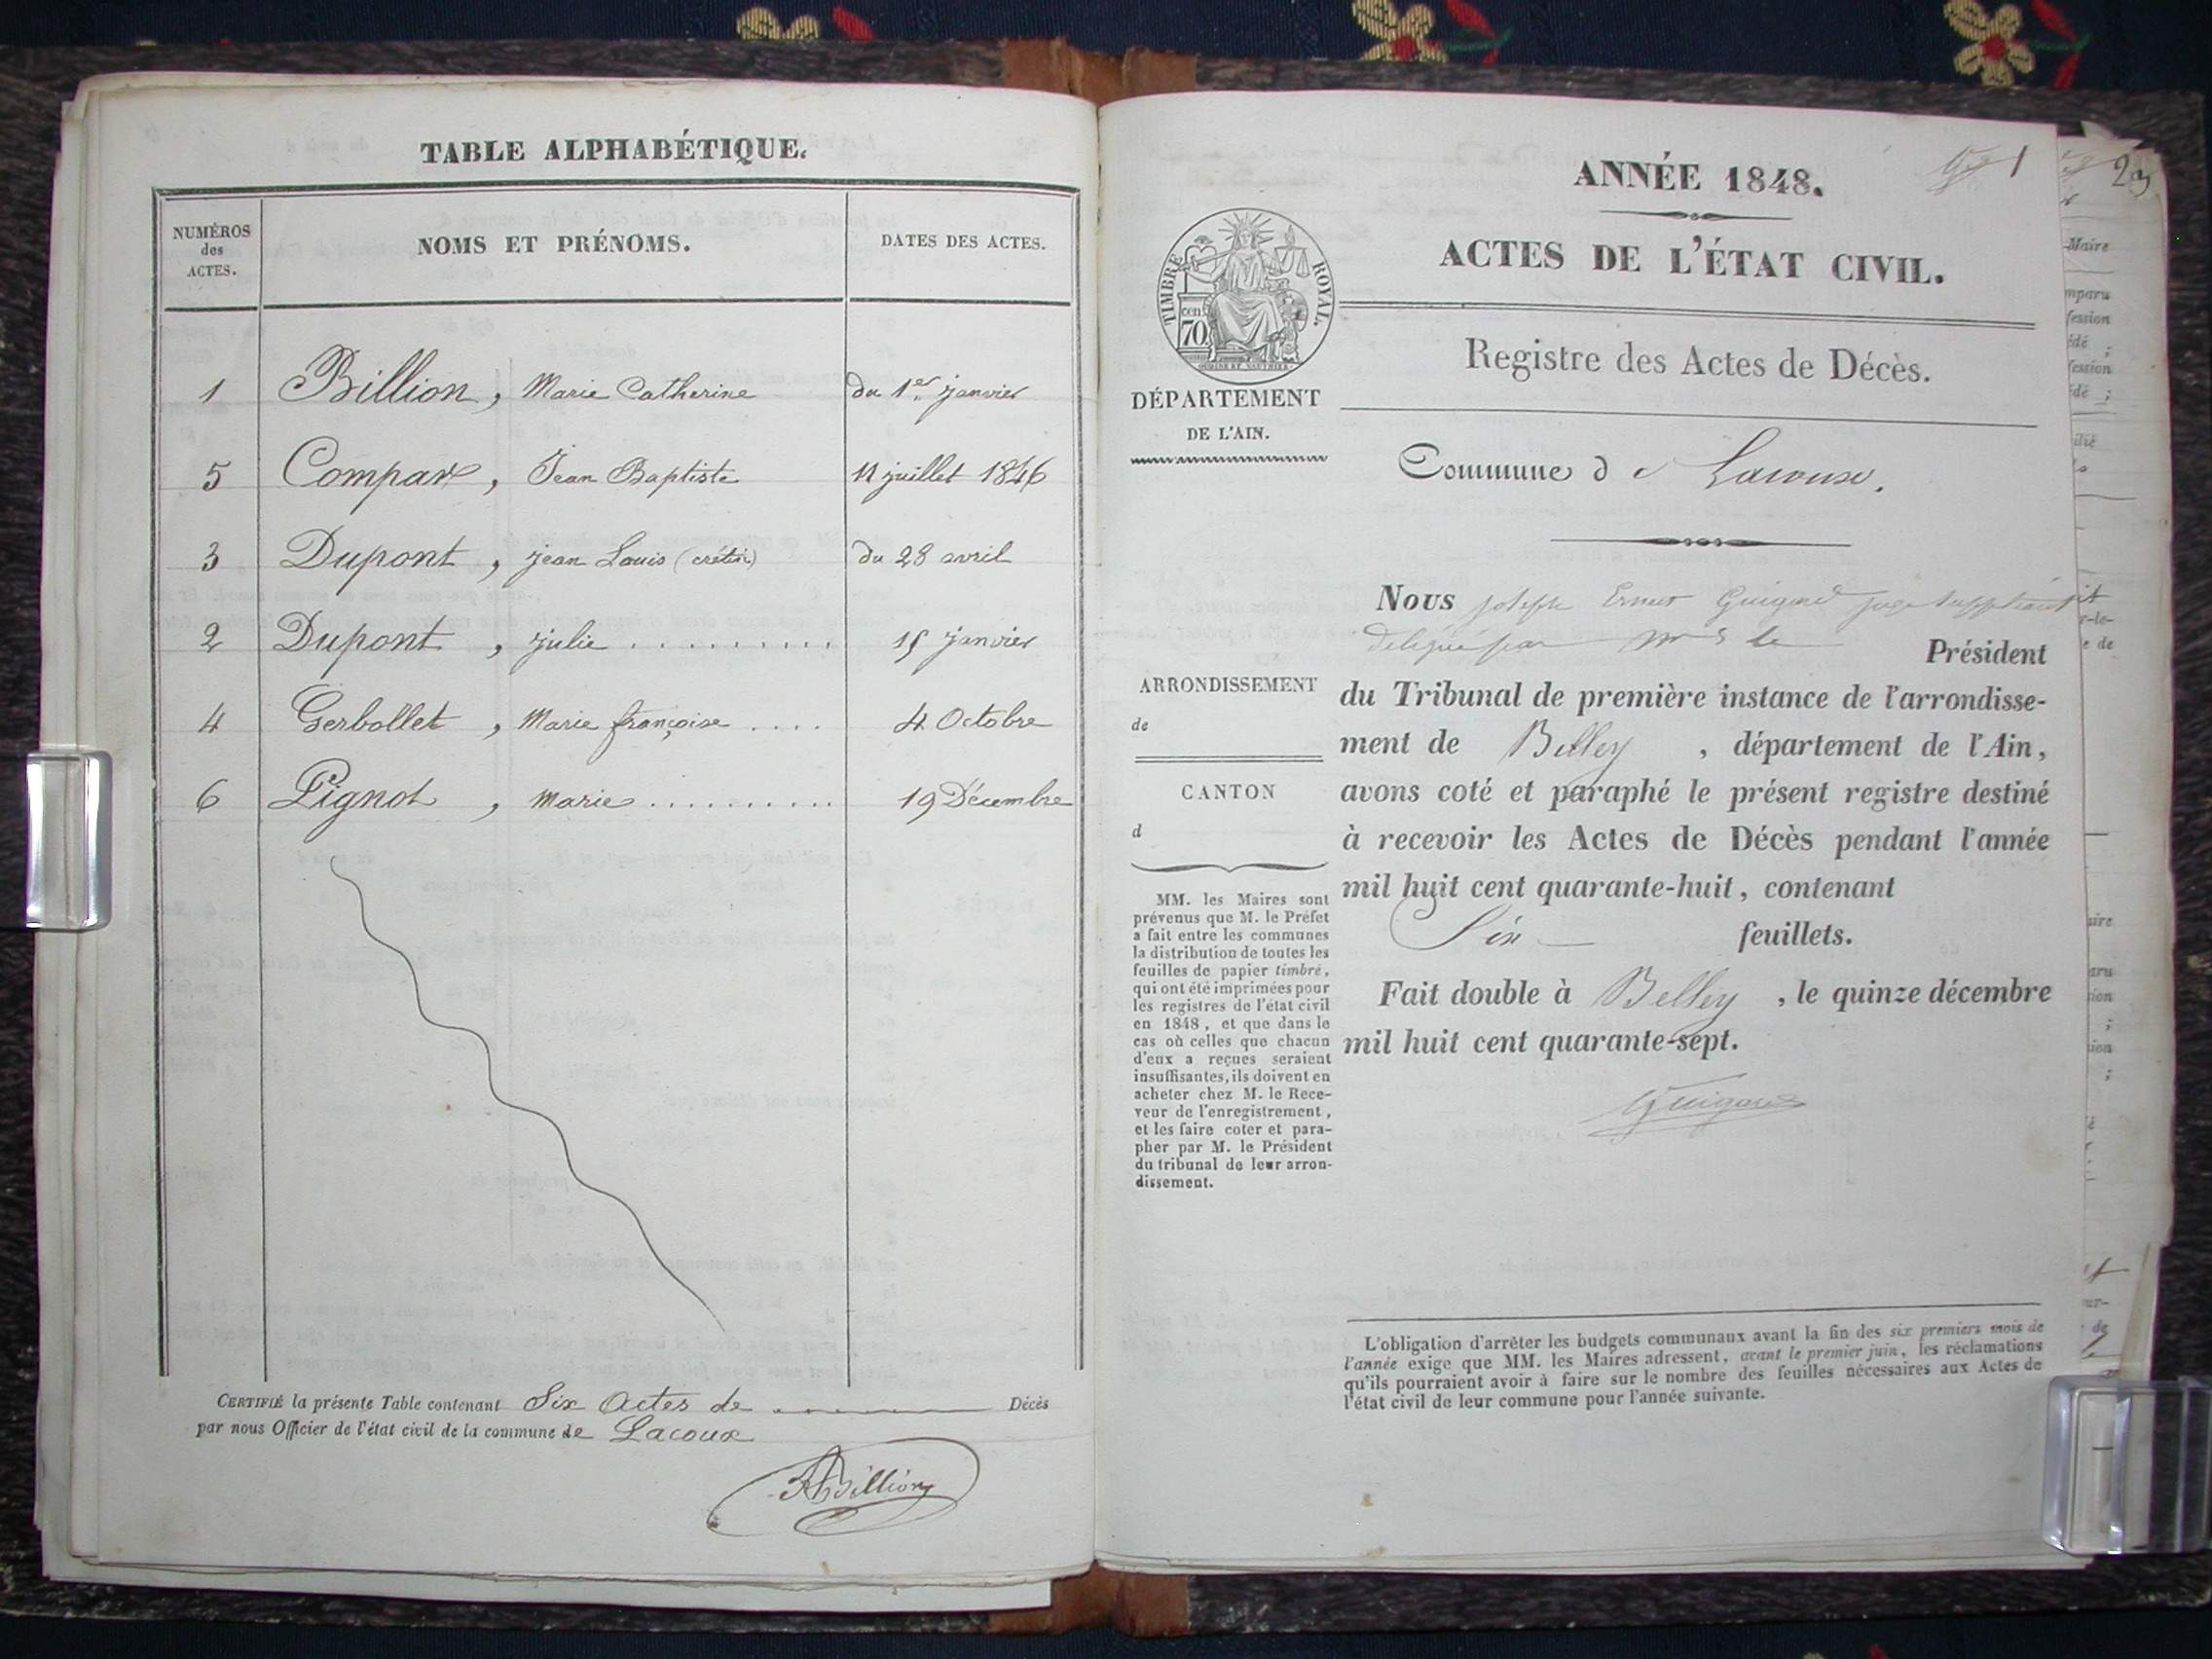 TABLE ALPHABÉTIQUE.
NUMÉROS des ACTES.
NOMS ET PRÉNOMS.
DATES DES ACTES.
1 Billion, Marie Catherine du 1er janvier
5 Compare, Jean Baptiste 11 juillet 1846
3 Dupont, jean Louis (crétin) du 28 avril
2 Dupont, julie .......... 15 janvier
4 Gerbollet, Marie françoise .... 4 Octobre
6 Pignot, Marie .......... 19 Décembre
CERTIFIÉ la présente Table contenant Six Actes de Décès
par nous Officier de l'état civil de la commune de Lacoux
Billion
1
ANNÉE 1848.
ACTES DE L'ÉTAT CIVIL.
TIMBRE ROYAL.
cen. 70
Registre des Actes de Décès.
DÉPARTEMENT
DE L'AIN.
Commune de Lacoux.
Nous joseph Ernest Guigard juge suppléant
délégué par Mr le Président
du Tribunal de première instance de l'arrondisse-
ment de Belley, département de l'Ain,
avons coté et paraphé le présent registre destiné
à recevoir les Actes de Décès pendant l'année
mil huit cent quarante-huit, contenant
Six feuillets.
Fait double à Belley, le quinze décembre
mil huit cent quarante-sept.
ARRONDISSEMENT
de
CANTON
d
MM. les Maires sont
prévenus que M. le Préfet
a fait entre les communes
la distribution de toutes les
feuilles de papier timbré,
qui ont été imprimées pour
les registres de l'état civil
en 1848, et que dans le
cas où celles que chacun
d'eux a reçues seraient
insuffisantes, ils doivent en
acheter chez M. le Rece-
veur de l'enregistrement,
et les faire coter et para-
pher par M. le Président
du tribunal de leur arron-
dissement.
L'obligation d'arrêter les budgets communaux avant la fin des six premiers mois de
l'année exige que MM. les Maires adressent, avant le premier juin, les réclamations
qu'ils pourraient avoir à faire sur le nombre des feuilles nécessaires aux Actes de
l'état civil de leur commune pour l'année suivante.
Maire